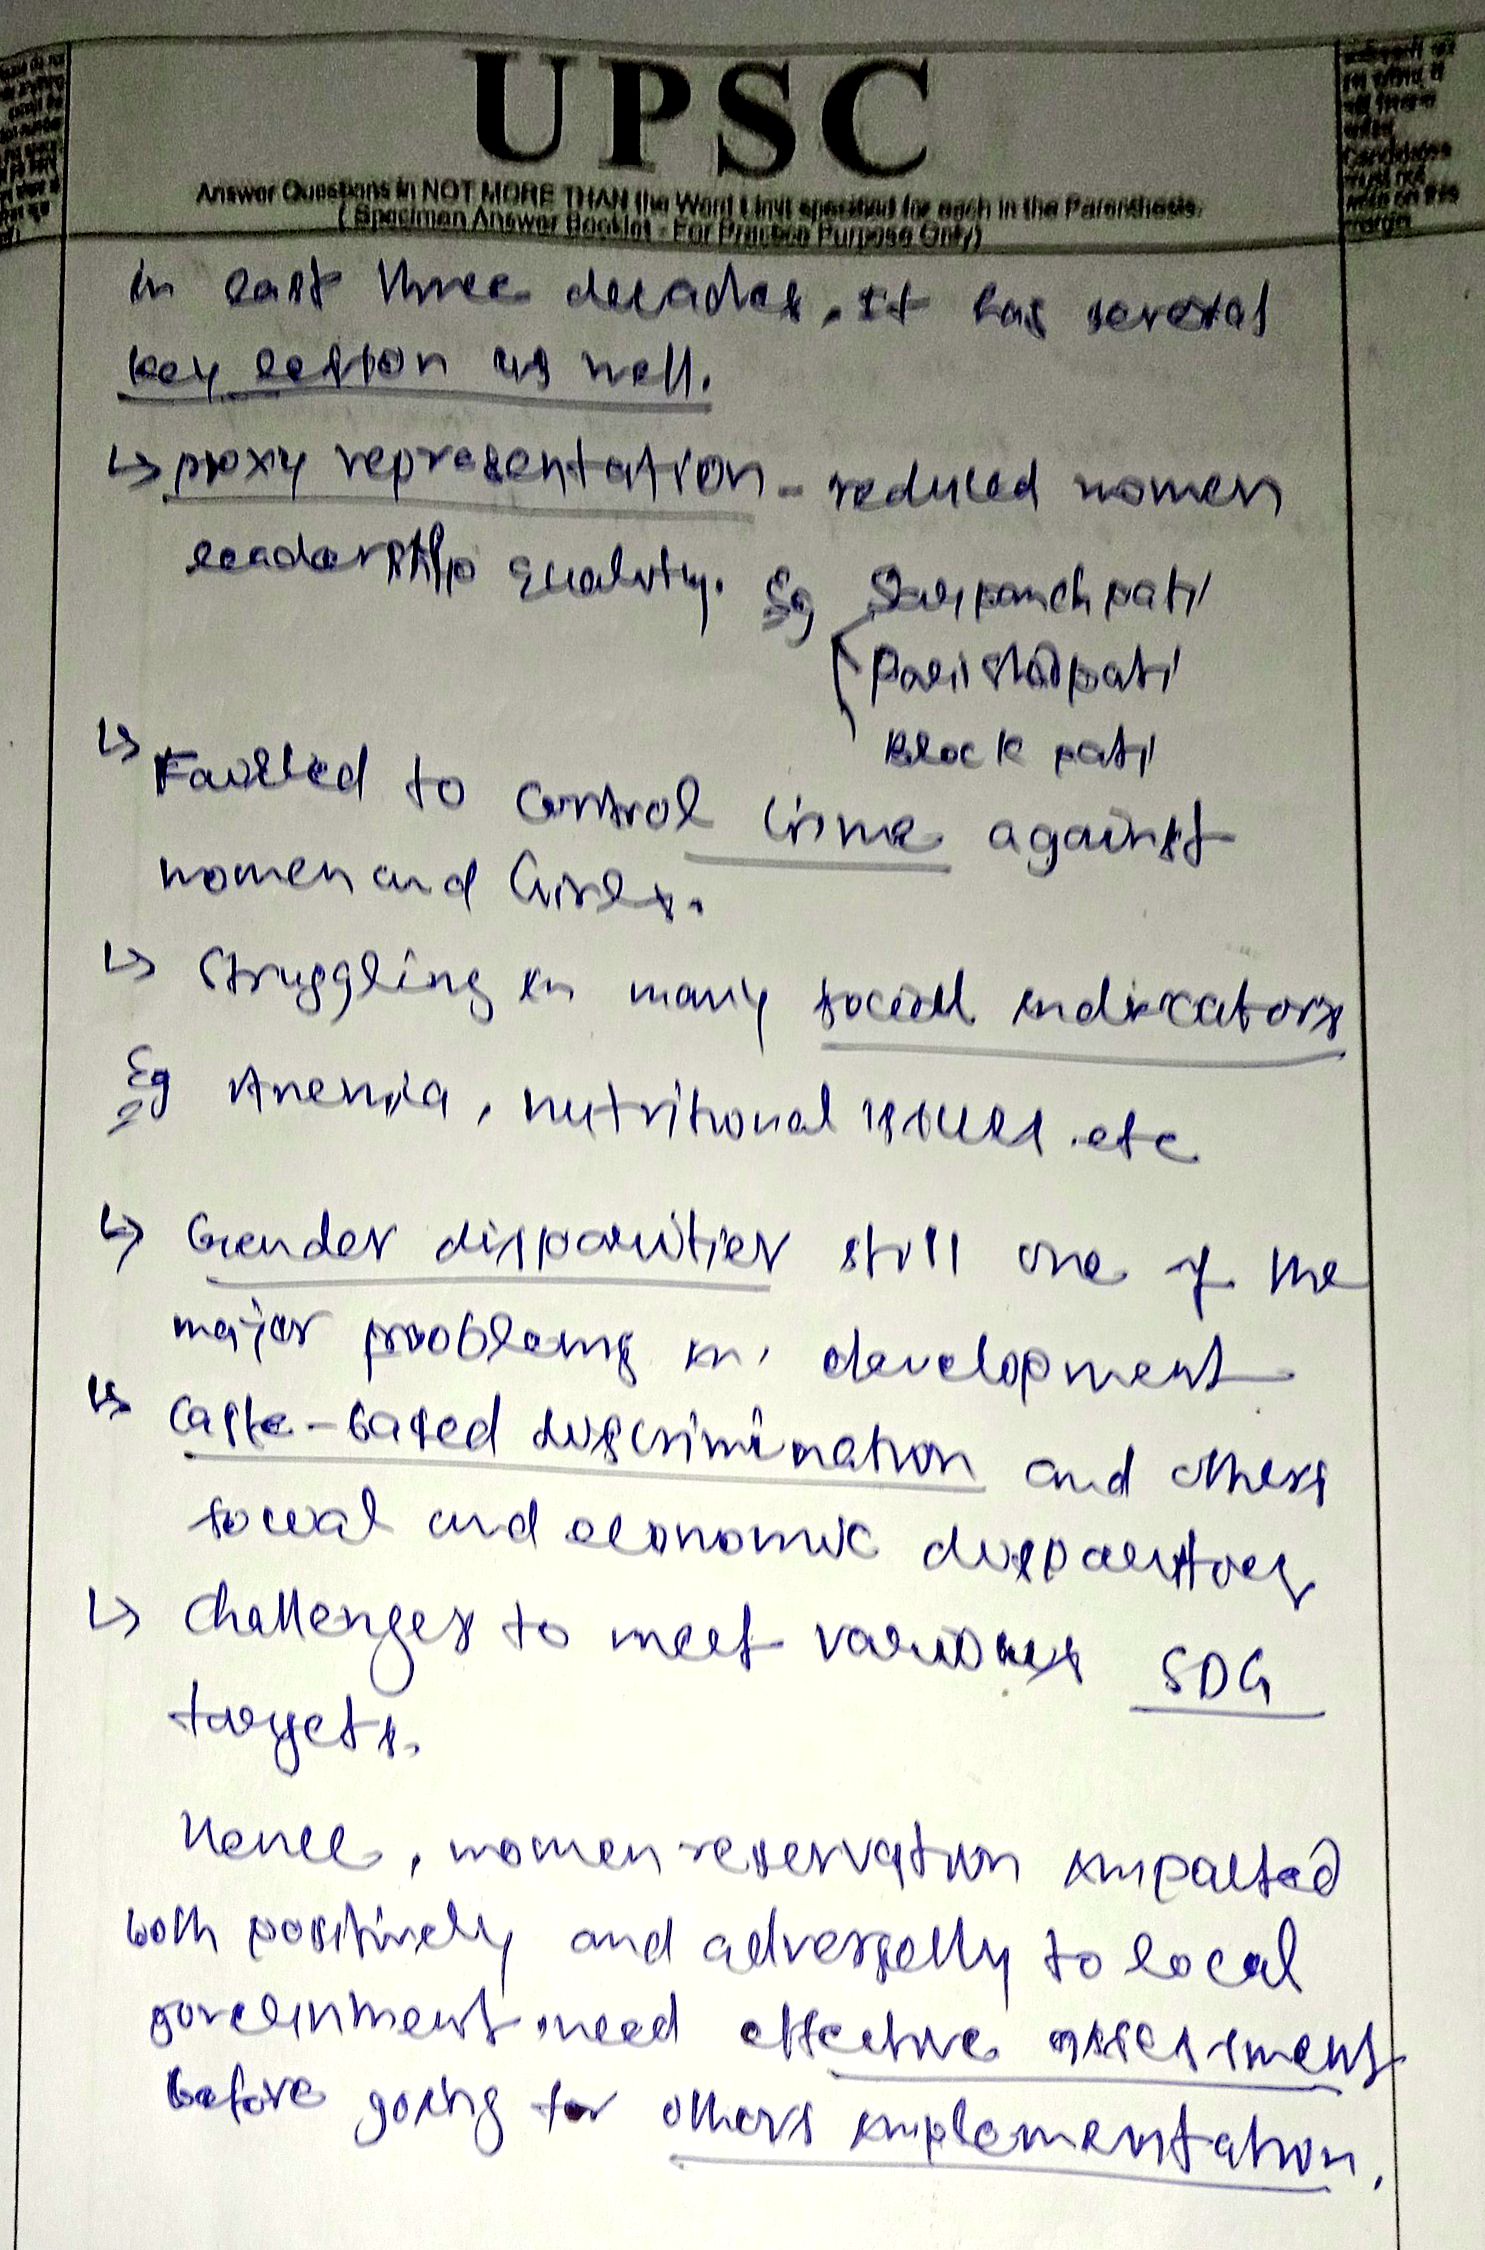 UPSC
Answer Questions in NOT MORE THAN the Word Limit specified for each in the Parenthesis.
( Specimen Answer Booklet - For Practice Purpose Only)
Candidates
must not
write on this
margin
in last three decades, it has several
key lesson as well.
↳ proxy representation - reduced women
leadership quality. Eg Sarpanch pati
Parishad pati
Block pati
↳ Failled to control crime against
women and Girls.
↳ Struggling in many social indicators
Eg Anemia, nutritional issues etc
↳ Gender disparities still one of the
major problems in development
↳ Caste-based discrimination and others
social and economic disparities
↳ Challenges to meet various SDG
targets.
Hence, women reservation impacted
both positively and adversely to local
government need effective assessment
before going for others implementation.